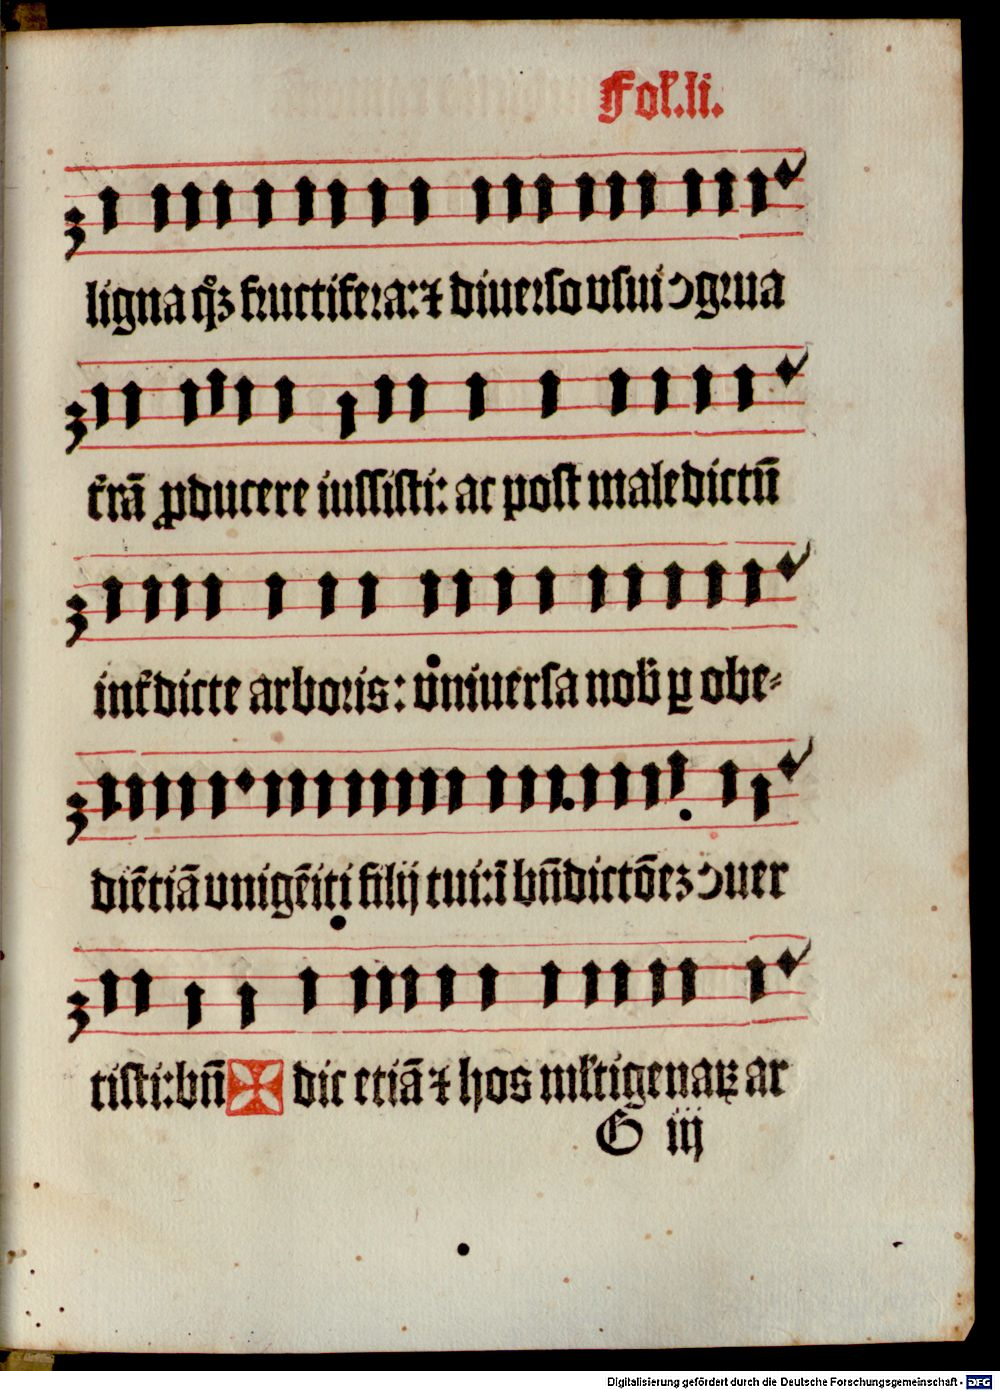 Fol.li.
ligna qꝫ fructifera: ⁊ diuerso vsui ꝯgrua
t̄rā ꝓducere iussisti: ac post maledictū
int̄dicte arboris: vniuersa nob̄ ꝑ obe⸗
diētiā vnigēiti filij tui: ī bn̄dictōeꝫ ꝯuer
tisti: bn̄ ✠ dic etiā ⁊ hos ml̄tigenaꝝ ar
G iij
Digitalisierung gefördert durch die Deutsche Forschungsgemeinschaft - DFG